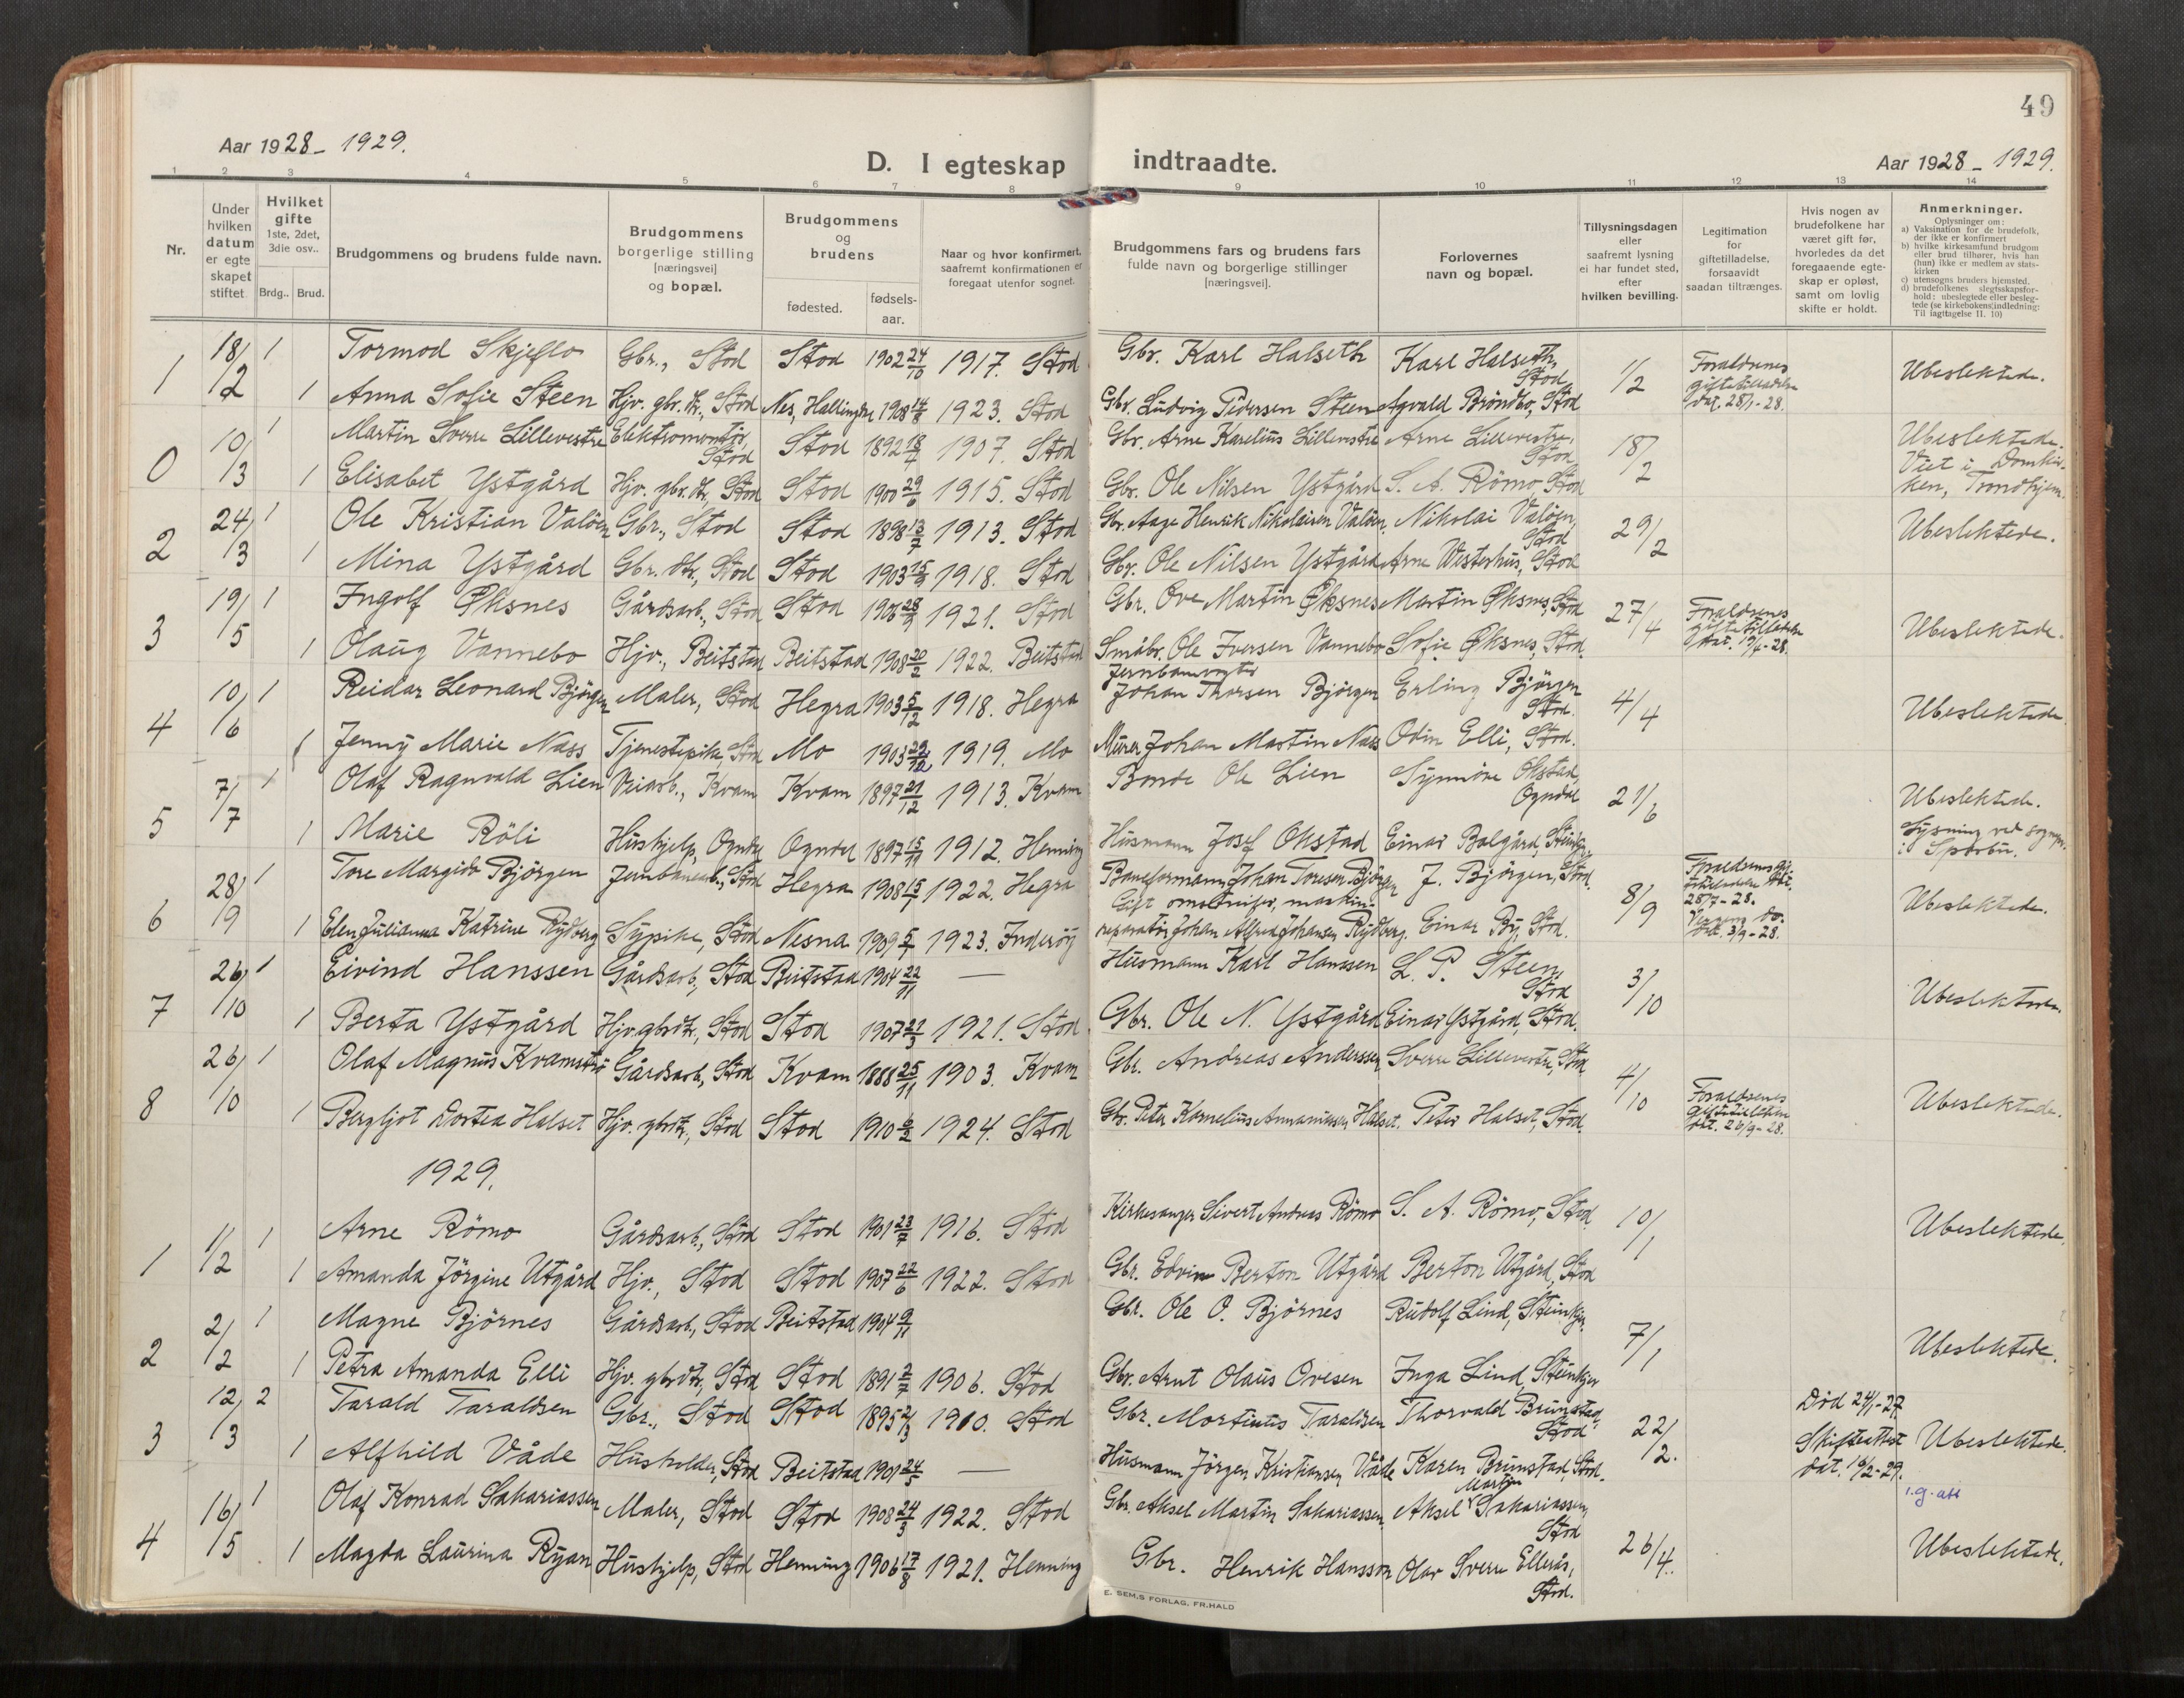 49
Aar 1928 - 1929.
D. I egteskap indtraadte.
Aar 1928 - 1929.
1 2 3 4 5 6 7 8 9 10 11 12 13 14
Nr.
Under hvilken datum er egteskapet stiftet.
Hvilket gifte 1ste, 2det, 3die osv..
Brdg.. Brud.
Brudgommens og brudens fulde navn.
Brudgommens borgerlige stilling [næringsvei] og bopæl.
Brudgommens og brudens
fødested.
fødsels-aar.
Naar og hvor konfirmert, saafremt konfirmationen er foregaat utenfor sognet.
Brudgommens fars og brudens fars fulde navn og borgerlige stillinger [næringsvei].
Forlovernes navn og bopæl.
Tillysningsdagen eller saafremt lysning ei har fundet sted, efter hvilken bevilling.
Legitimation for giftetilladelse, forsaavidt saadan tiltrænges.
Hvis nogen av brudefolkene har været gift før, hvorledes da det foregaaende egteskap er opløst, samt om lovlig skifte er holdt.
Anmerkninger.
Oplysninger om:
a) Vaksination for de brudefolk, der ikke er konfirmert
b) hvilke kirkesamfund brudgom eller brud tilhører, hvis han (hun) ikke er medlem av statskirken
c) utensogns bruders hjemsted.
d) brudefolkenes slegtsskapsforhold: ubeslegtede eller beslegtede (se kirkebokens indledning: Til iagttagelse II. 10)
1 18/2 1 Tormod Skjeflo Gbr., Stod Stod 1902 24/10 1917. Stod Gbr. Karl Halseth Karl Halseth, Stod 1/2 Forældrenes giftetilladelse dat. 28/1-28. Ubeslektede.
1 Anna Sofie Steen Hjv. gbr. dtr., Stod Nes, 1908 1923. Stod Gbr. Ludvig Pedersen Steen Agvald Bröndbo, Stod
0 10/3 1 Martin Sverre Lillevestre Elektromontör, Stod Stod 1892 18/4 1907. Stod Gbr. Arne Karelius Lillevestre Arne Lillevestre, Stod 18/2 Ubeslektede. Viet i Domkirken, Trondhjem.
1 Elisabet Ystgård Hjv. gbr. dtr. Stod Stod 1900 29/6 1915. Stod Gbr. Ole Nilsen Ystgård S. A. Römo, Stod
2 24/3 1 Ole Kristian Valöen Gbr., Stod Stod 1898 13/7 1913. Stod Gbr. Aage Henrik Nikolaisen Valöen Nikolai Valöen, Stod 29/2 Ubeslektede.
1 Mina Ystgård Gbr. dtr., Stod Stod 1903 1918. Stod Gbr. Ole Nilsen Ystgård Arne Westerhus, Stod
3 19/5 1 Ingolf Øksnes Gårdsarb., Stod Stod 1906 1921. Stod Gbr. Ove Martin Øksnes Martin Øksnes, Stod 27/4 Forældrenes giftetilladelse dat. Ubeslektede.
1 Olaug Vannebo Hjv., Beitstad Beitstad 1908 20/2 1922. Beitstad Småbr. Ole Iversen Vannebo Sofie Øksnes, Stod.
4 10/6 1 Reidar Leonard Björgen Maler, Stod Hegra 1903 5/12 1918. Hegra Jernbanevogter Johan Thorsen Björgen Erling Björgen Stod. 4/4 Ubeslektede
1 Jenny Marie Næss Tjenestepike, Stod Mo 1903 29/12 1919. Mo Murer Johan Martin Næs Odin Elli, Stod.
5 7/7 1 Olaf Ragnvald Lien Veiarb., Kvam Kvam 1897 21/12 1913. Kvam Bonde Ole Lien Synnöve Okstad, Ogndal 21/6 Ubeslektede. Lysning ved sognepr. i Sparbu.
1 Marie Röli Hushjelp, Ogndal Ogndal 1897 15/11 1912. Henning Husmann Josef Okstad Einar Balgård, Steinkjer.
6 28/9 1 Tore Margido Björgen Jernbanearb., Stod Hegra 1908 15/1 1922. Hegra Baneformann Johan Toresen Björgen J. Björgen, Stod. 8/9 Forældrenes 28/7-28. dat. 3/9-28. Ubeslektede.
1 Elen Julianna Katrine Rydberg Sypike, Stod Nesna 1909 1923. Inderöy maskinreparatör Johan Alfred Johansen Rydberg. Einar By, Stod.
7 26/10 1 Eivind Hanssen Gårdsarb., Stod Beitstad 1904 22/11 — Husmann Karl Hanssen L. P. Steen, Stod 3/10 Ubeslektede.
1 Berta Ystgård Hjv. gbrdtr., Stod Stod 1907 1921. Stod Gbr. Ole N. Ystgård Einar Ystgård, Stod.
8 26/10 1 Olaf Magnus Kvamstrø Gårdsarb., Stod Kvam 1888 25/11 1903. Kvam Gbr. Andreas Anderssen Sverre Lillevestre, Stod 4/10 Forældrenes giftetilladelse dat. 26/9-28. Ubeslektede.
1 Bergljot Dortea Halset Hjv. gbrdtr., Stod Stod 1910 6/2 1924. Stod Gbr. Peter Kornelius Annaniassen Halset. Peter Halset, Stod.
1929.
1 1/2 1 Arne Römo Gårdsarb., Stod Stod 1901 23/7 1916. Stod Kirkesanger Sivert Andreas Römo S. A. Römo, Stod 10/1 Ubeslektede.
1 Amanda Jörgine Utgård Hjv., Stod Stod 1907 22/6 1922. Stod Gbr. Edvin Berton Utgård Berton Utgård, Stod
2 2/2 1 Magne Björnes Gårdsarb., Stod Beitstad 1904 9/11 Gbr. Ole O. Björnes Rudolf Lind, Steinkjer. 7/1 Ubeslektede.
1 Petra Amanda Elli Hjv. gbrdtr., Stod Stod 1891 2/7 1906. Stod Gbr. Arnt Olaus Ovesen Inga Lind, Steinkjer
3 12/3 2 Tarald Taraldsen Gbr., Stod Stod 1895 1910. Stod Gbr. Mortinus Taraldsen Thorvald Brunstad, Stod 22/2. Död 24/1-27. Skifteattest dat. 16/2-29. Ubeslektede.
1 Alfhild Våde Husholder, Stod Beitstad 1901 24/5 — Husmann Jörgen Kristiansen Våde Karen Brunstad, Stod.
4 16/5 1 Olaf Konrad Sakariassen Maler, Stod Stod 1908 24/3 1922. Stod Gbr. Aksel Martin Sakariassen. Aksel Martin Sakariassen, Stod 26/4. i.g. att Ubeslektede.
1 Magda Laurina Ryan Hushjelp, Stod Henning 1906 17/8 1921. Henning Gbr. Henrik Hansson Olav Sverre Ellerås, Stod.
E. SEM,S FORLAG, FR.HALD